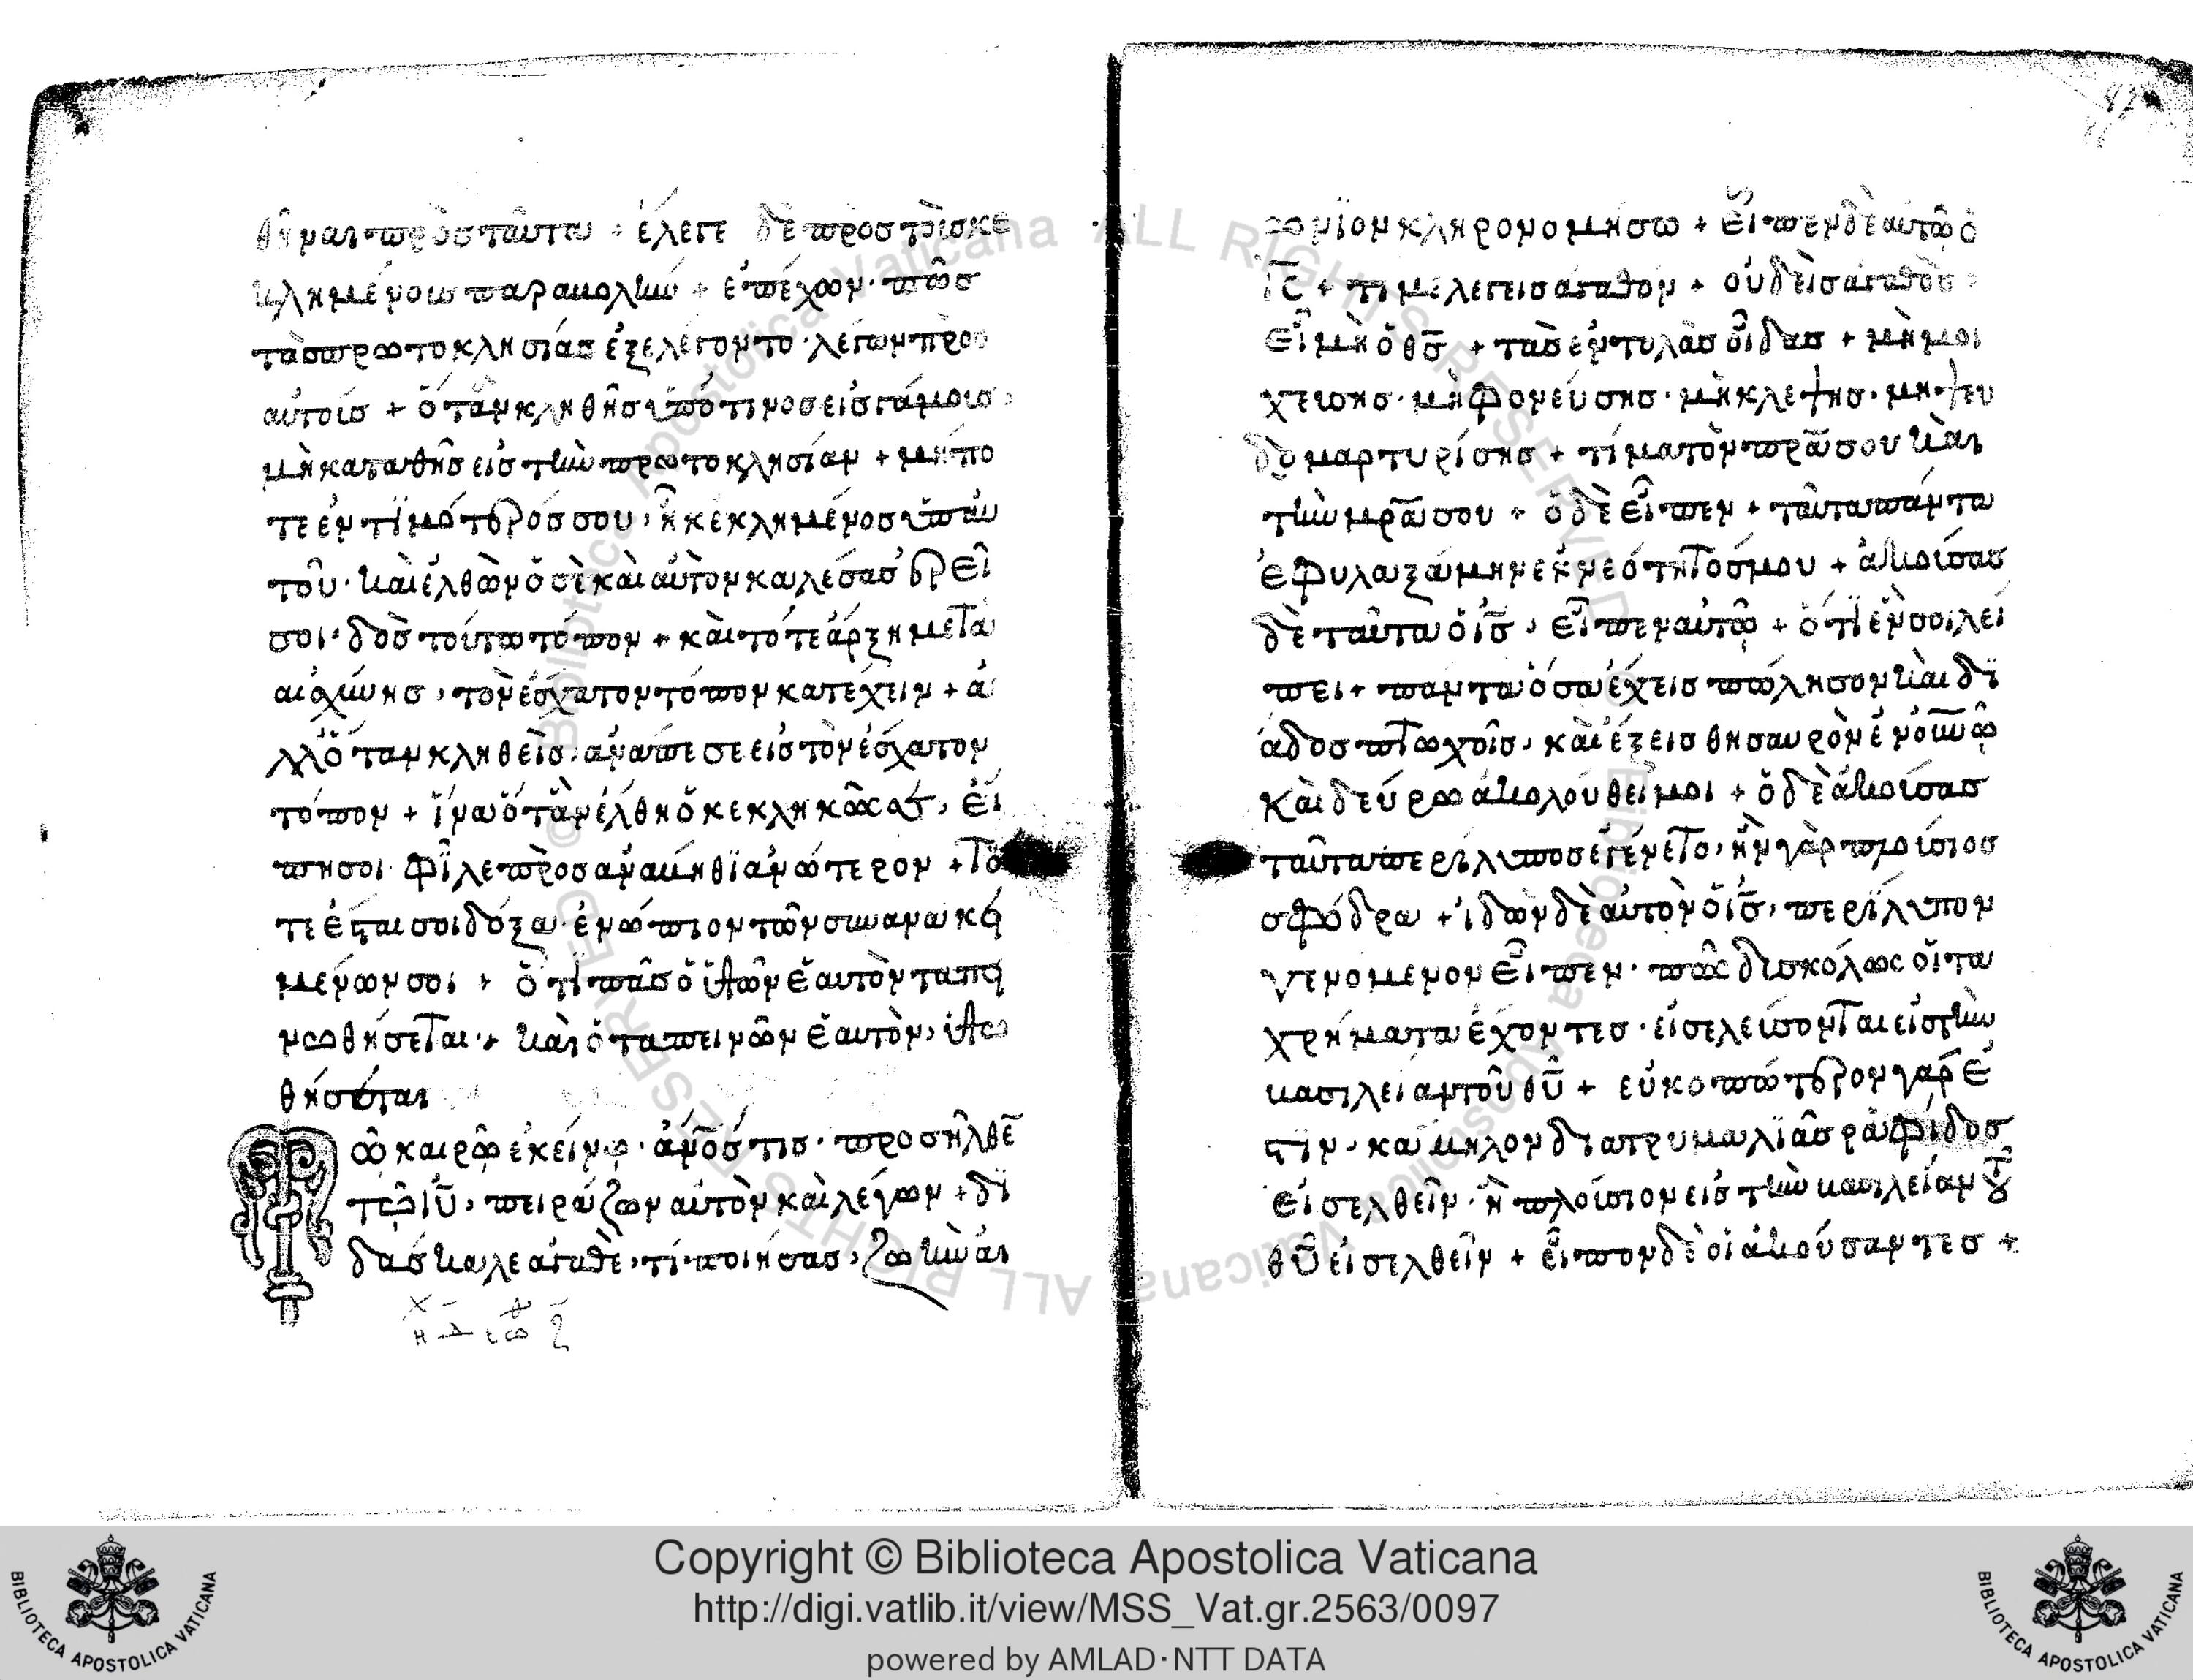 θῆναι πρὸς ταῦτα + ἔλεγε δὲ πρὸς τοὶσ κε
κλημένοισ παραβολὴν + ἐπέχων· πῶσ
τὰσ πρωτοκλησίασ ἐξελέγοντο· λέγων πρὸσ
αὐτοίσ + ὅταν κληθῆσ ὑπό τινοσ εἰσ γάμουσ
μὴ καταθῆσ εἰσ τὴν πρωτοκλησίαν + μήπο
τε ἐντϊμότερόσ σου, ἦ κεκλημένοσ ὑπ αὐ
τοῦ· καὶ ἐλθὼν ὁ σὲ καὶ αὐτὸν καλέσασ ἐρεῖ
σοι· δὸσ τούτω τόπον + καὶ τότε ἄρξη μετὰ
αἰσχύνησ, τὸν ἔσχατον τόπον κατέχειν + ἀ
λλ ὅταν κληθεὶσ, ἀνάπεσε εἰσ τὸν ἔσχατον
τόπον + ἵνα ὅταν ἔλθη ὁ κεκληκώσ σε, εἴ
πη σοι· φίλε προσανάβηθϊ ἀνώτερον + τό
τε ἔσται σοι δόξα· ἐνώπιον τῶν συνανακει
μένων σοι + ὅτϊ πᾶσ ὁ ὑψῶν ἑαυτὸν ταπει
νωθήσεται + καὶ ὁ ταπεινῶν ἑαυτὸν, ὑψω
θήσεται
Τῶ καιρῶ ἐκείνω· ἄνοσ τισ· προσῆλθε
τῶ ιυ, πειράζων αὐτὸν καὶ λέγων + δϊ
δάσκαλε ἀγαθὲ, τί ποιήσασ, ζωὴν αι
ωνϊον κληρονομήσω + εἶπεν δὲ αὐτῶ ὁ
ισ + τί με λέγεισ ἀγαθὸν + οὐδεὶσ ἀγαθὸσ
εἶ μὴ ὁ θσ + τὰσ ἐντολὰσ οἶδασ + μὴ μοι
χεύσησ· μὴ φονεύσησ· μὴ κλέψησ· μὴ ψευ
δομαρτυρίσησ + τίμα τὸν πρα σου καὶ
τὴν μρα σου + ὁ δὲ εἶπεν + ταῦτα πάντα
ἐφυλαξάμην ἐκ νεότητόσ μου + ἀκούσασ
δὲ ταῦτα ὁ ισ, εἶπεν αὐτῶ + ὅτϊ ἕν σοι λεί
πει + πάντα ὅσα ἔχεισ πώλησον καὶ δϊ
άδοσ πτωχοῖσ, καὶ ἕξεισ θησαυρὸν ἐν οὐνω
καὶ δεύρω ἀκολούθει μοι + ὁ δὲ ἀκούσασ
ταῦτα περίλυποσ ἐγένετο, ἦν γὰρ πλούσιοσ
σφόδρα + ἰδὼν δὲ αὐτὸν ὁ ισ, περίλυπον
γενόμενον εἶπεν· πῶς δισκόλως οἱ τὰ
χρήματα ἔχοντεσ· εἰσελεύσονται εἰσ τὴν
βασιλείαν τοῦ θυ + εὐκοπώτερον γάρ ἐ
στϊν, κάμηλον διὰ τρυμαλϊᾶσ ραφίδοσ
εἰσελθεῖν· ἢ πλούσιον εἰσ τὴν βασιλείαν τοῦ
θυ εἰσελθεῖν + εἶπον δὲ οἱ ἀκούσαντεσ +
Copyright © Biblioteca Apostolica Vaticana
http://digi.vatlib.it/view/MSS_Vat.gr.2563/0097
powered by AMLAD·NTT DATA
BIBLIOTECA APOSTOLICA VATICANA
BIBLIOTECA APOSTOLICA VATICANA